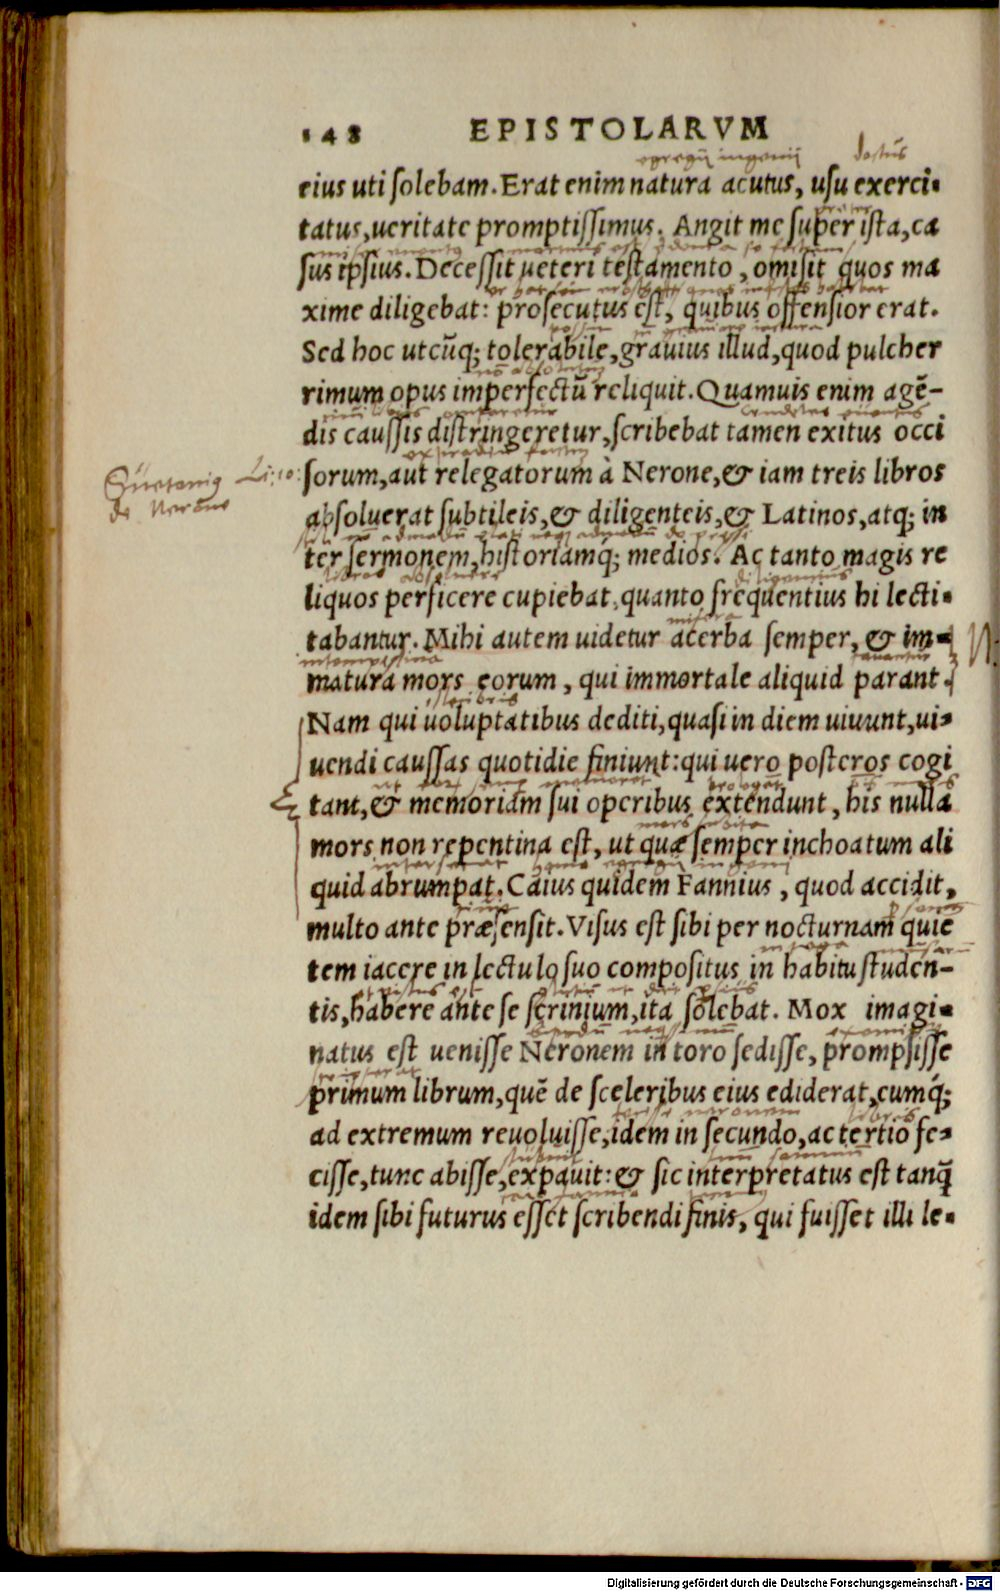 148 EPISTOLARVM
egregij ingenij doctus
eius uti solebam. Erat enim natura acutus, usu exerci-
tatus, ueritate promptissimus. Angit me super ista, ca
sus ipsius. Decessit ueteri testamento, omisit quos ma
xime diligebat: prosecutus est, quibus offensior erat.
Sed hoc utcūq; tolerabile, grauius illud, quod pulcher
rimum opus imperfectū reliquit. Quamuis enim agē-
dis caussis distringeretur, scribebat tamen exitus occi
Suetonius Li: 10:
sorum, aut relegatorum à Nerone, & iam treis libros
de Nerone
absoluerat subtileis, & diligenteis, & Latinos, atq; in
ter sermonem, historiamq́; medios. Ac tanto magis re
liquos perficere cupiebat, quanto frequentius hi lecti-
misera
tabantur. Mihi autem uidetur acerba semper, & im-
intempestiua
matura mors eorum, qui immortale aliquid parant.
Nam qui uoluptatibus dediti, quasi in diem uiuunt, ui-
uendi caussas quotidie finiunt: qui uero posteros cogi
tant, & memoriam sui operibus extendunt, his nulla
mors subita
mors non repentina est, ut quæ semper inchoatum ali
quid abrumpat. Caius quidem Fannius, quod accidit,
multo ante præsensit. Visus est sibi per nocturnam quie
in toga
tem iacere in lectulo suo compositus in habitu studen-
tis, habere ante se scrinium, ita solebat. Mox imagi-
natus est uenisse Neronem in toro sedisse, prompsisse
scripserat
primum librum, quē de sceleribus eius ediderat, cumq́;
neronem libris
ad extremum reuoluisse, idem in secundo, ac tertio fe-
somnium
cisse, tunc abisse, expauit: & sic interpretatus est tanq̄
idem sibi futurus esset scribendi finis, qui fuisset illi le-
Digitalisierung gefördert durch die Deutsche Forschungsgemeinschaft - DFG